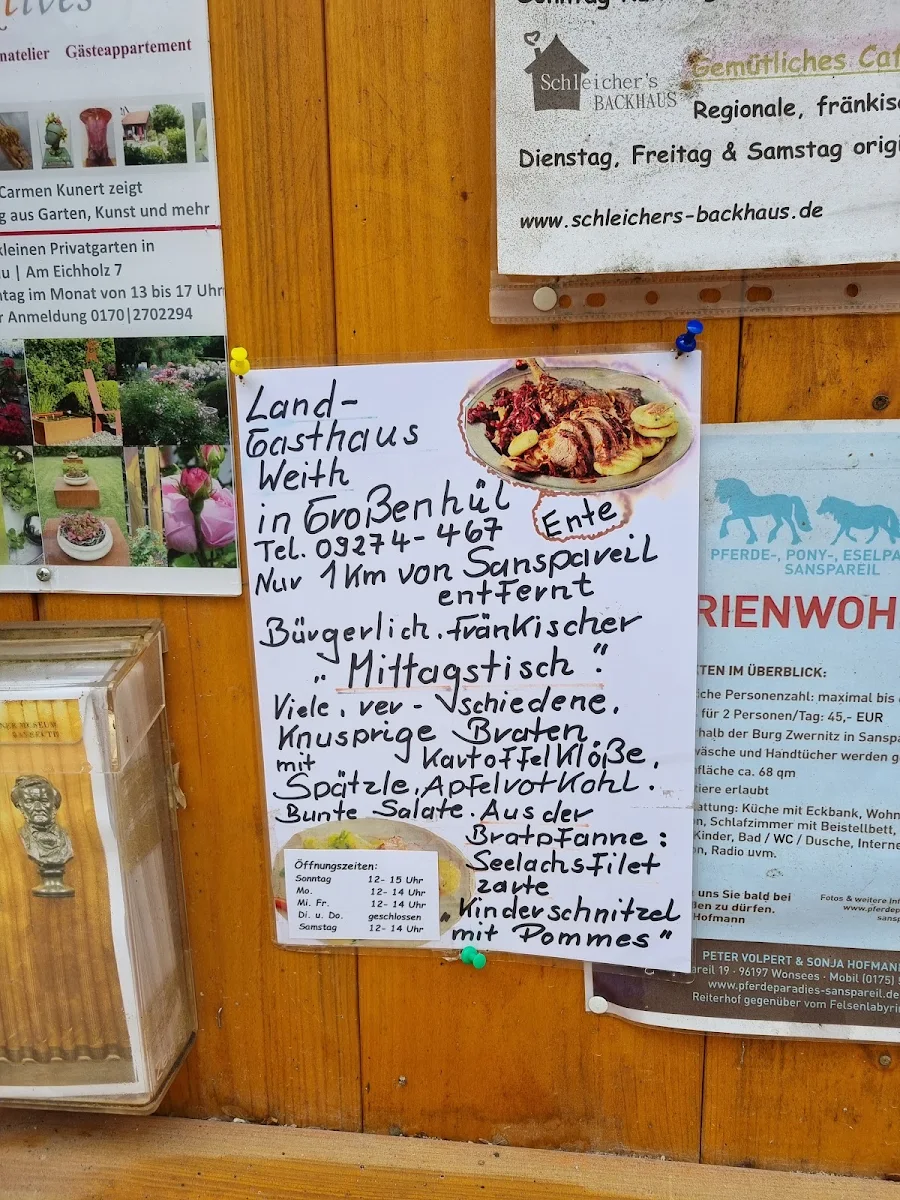 Gästeappartement
Carmen Kunert zeigt
aus Garten, Kunst und mehr
kleinen Privatgarten in
Am Eichholz 7
im Monat von 13 bis 17 Uhr
Anmeldung 0170|2702294
Schleicher's
BACKHAUS
Gemütliches
Regionale,
Dienstag, Freitag & Samstag
www.schleichers-backhaus.de
Land-
Gasthaus
Weith
in Großenhül
Tel. 09274-467
Ente
Nur 1Km von Sanspareil
entfernt
Bürgerlich. fränkischer
„Mittagstisch“
Viele, ver- schiedene,
Knusprige Braten
mit Kartoffelklöße,
Spätzle, Apfelrotkohl.
Bunte Salate. Aus der
Bratpfanne:
Seelachsfilet
zarte
„Kinderschnitzel
mit Pommes"
Öffnungszeiten:
Sonntag 12- 15 Uhr
Mo. 12- 14 Uhr
Mi. Fr. 12- 14 Uhr
Di. u. Do. geschlossen
Samstag 12- 14 Uhr
PFERDE-, PONY-,
SANSPAREIL
RIENWOH
TEN IM ÜBERBLICK:
che Personenzahl: maximal bis
für 2 Personen/Tag: 45,- EUR
halb der Burg Zwernitz in
wäsche und Handtücher werden
fläche ca. 68 qm
tiere erlaubt
attung: Küche mit Eckbank,
Schlafzimmer mit Beistellbett,
Kinder, Bad / WC / Dusche,
Radio uvm.
uns Sie bald bei
en zu dürfen.
Hofmann
Fotos & weitere
PETER VOLPERT & SONJA HOFMANN
areil 19 · 96197 Wonsees · Mobil (0175)
www.pferdeparadies-sanspareil.de
Reiterhof gegenüber vom